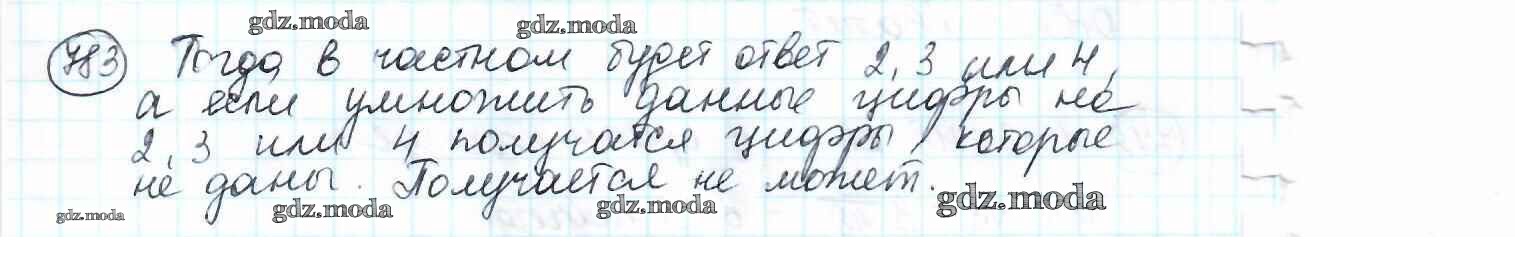 gdz.moda gdz.moda
783 Тогда в частном будет ответ 2, 3 или 4,
а если умножить данные цифры на
2, 3 или 4 получатся цифры, которые
не даны. Получается не может.
gdz.moda gdz.moda gdz.moda gdz.moda